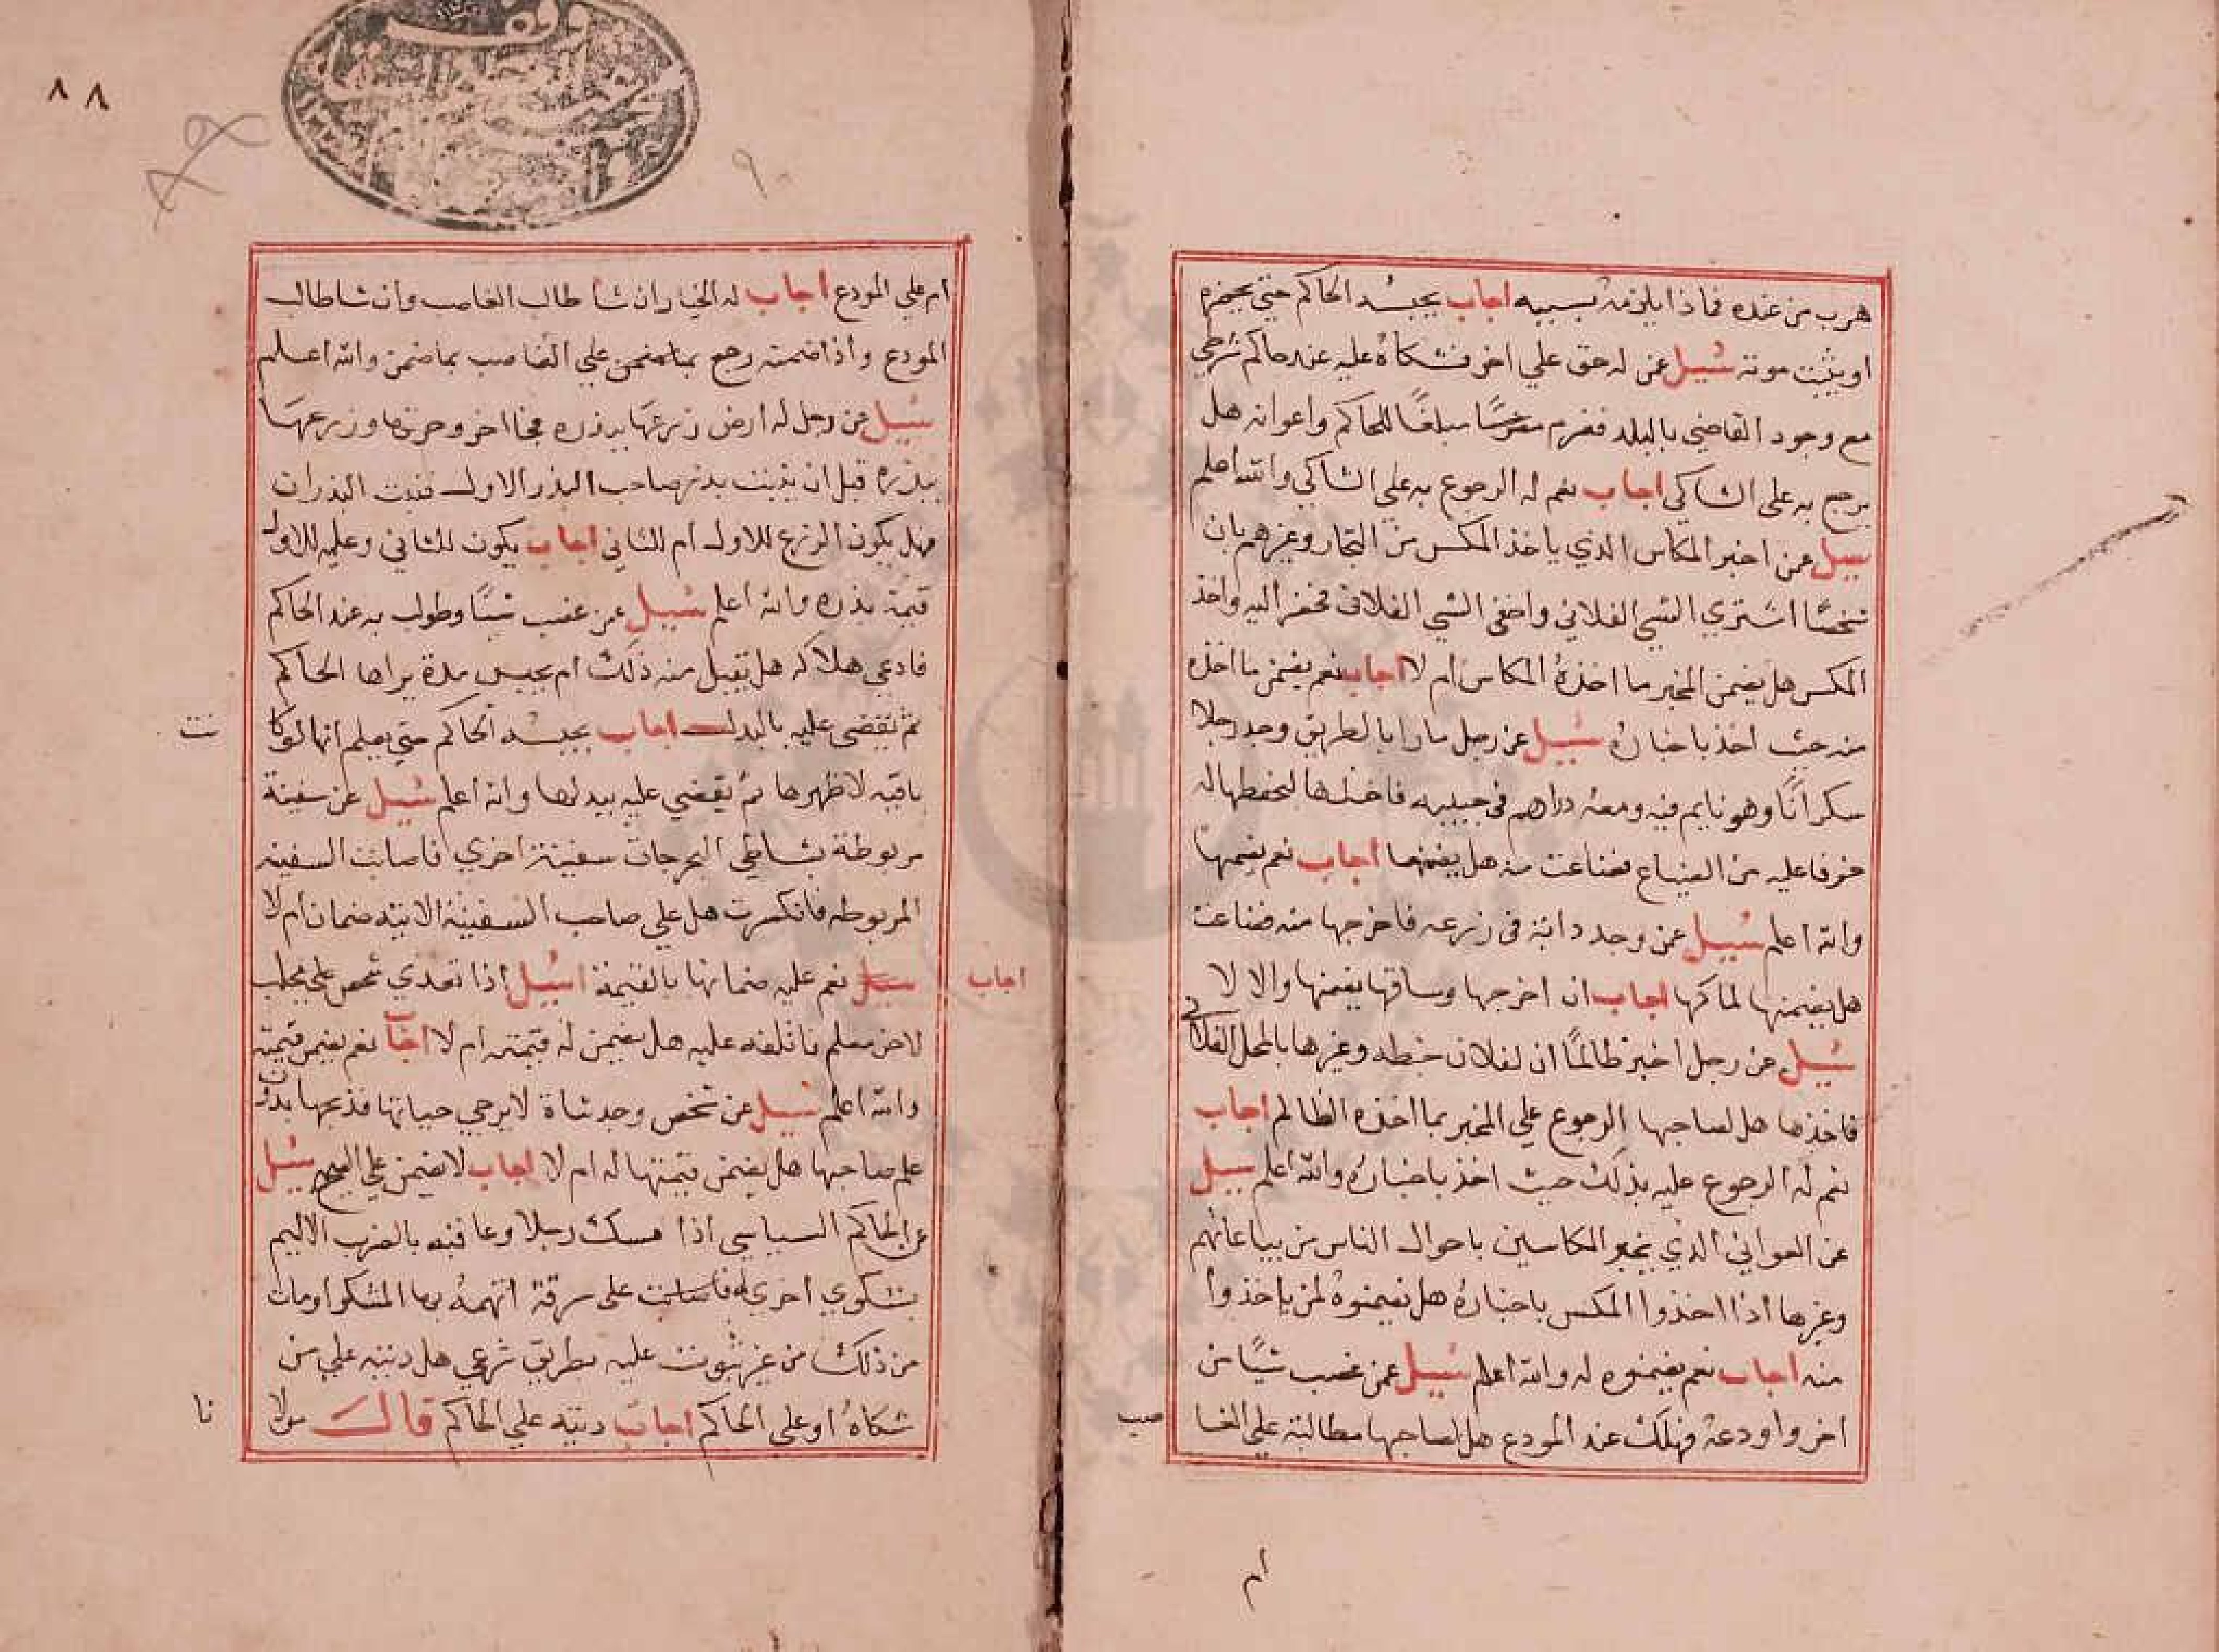 هرب من عنده فماذا يلزمه بسببه اجاب يحبسه الحاكم حتي يحضره
او يثبت موته سيل عن له حق علي اخر فشكاه عليه عند حاكم شرطي
مع وجود القاضي بالبلد فغرم مبلغا للحاكم واعوانه هل
يرجع به على الشاكي اجاب نعم له الرجوع به علي الشاكي والله اعلم
سيل عمن اخبر المكاس الذي ياخذ المكس من التجار وغيرهم بان
شخصًا اشتري الشي الفلاني واخفى الشي الفلاني فحضر اليه واخذ
المكس هل يضمن المخبر ما اخذه المكاس ام لا اجاب نعم يضمن ما اخذه
منه حيث اخذ باخباره سيل عن رجل مارا بالطريق وجد رجلا
سكرانًا وهو نايم فيه ومعه دراهم في جيبه فاخذها ليحفظها له
خوفا عليه من الضياع فضاعت منه هل يضمنها اجاب نعم يضمنها
والله اعلم سيل عمن وجد دابة في زرعه فاخرجها منه فضاعت
هل يضمنها لمالكها اجاب ان اخرجها وساقها يضمنها والا لا
سيل عن رجل اخبر ظالمًا ان لفلان حنطه وغيرها بالمحل الفلاني
فاخذها هل لصاحبها الرجوع علي المخبر بما اخذه الظالم اجاب
نعم له الرجوع عليه بذلك حيث اخذ باخباره والله اعلم سيل
عن العواني الذي يخبر المكاسين باحوال الناس من بياعاتهم
وغيرها اذا اخذوا المكس باخباره هل يضمنوه لمن ياخذوا
منه اجاب نعم يضمنوه له والله اعلم سيل عمن غصب شيًا من
اخر واودعه فهلك عند المودع هل لصاحبها مطالبة علي الغا
صب
ام
٨٨
٩٠
وقف
ام علي المودع اجاب له الخيار ان شا طالب الغاصب وان شا طالب
المودع واذا ضمنه رجع بما ضمن علي الغاصب بما ضمن والله اعلم
سيل عن رجل له ارض زرعها ببذره فجا اخر وحرثها وزرعها
ببذره قبل ان ينبت بذر صاحب البذر الاول فنبت البذران
فهل يكون الزرع للاول ام للثاني اجاب يكون للثاني وعليه للاول
قيمة بذره والله اعلم سيل عمن غصب شيًا وطولب به عند الحاكم
فادعي هلاكه هل يقبل منه ذلك ام يحبس مدة يراها الحاكم
ثم يقضى عليه بالبدل اجاب يحبسه الحاكم حتي يعلم انها لو كا
نت
باقيه لاظهرها ثم يقضي عليه ببدلها والله اعلم سيل عن سفينة
مربوطة بشاطي البحر جات سفينة اخري فاصابت السفينه
المربوطه فانكسرت هل علي صاحب السفينة الاتيه ضمان ام لا
اجاب
نعم عليه ضمانها بالقيمة سيل اذا تعدي شخص علي كلب
لاخر معلم فاتلفه عليه هل يضمن له قيمته ام لا اجاب نعم يضمن قيمته
والله اعلم سيل عن شخص وجد شاة لا يرجي حياتها فذبحها بدون
علم صاحبها هل يضمن قيمتها له ام لا اجاب لا يضمن علي الصحيح سيل
عن الحاكم السياسي اذا مسك رجلا وعاقبه بالضرب الاليم
بشكوي اخري له على سرقة اتهمه بها المشكو او مات
من ذلك من غير ثبوت عليه بطريق شرعي هل ديته علي من
شكاه او علي الحاكم اجاب ديته علي الحاكم قال مولا
نا